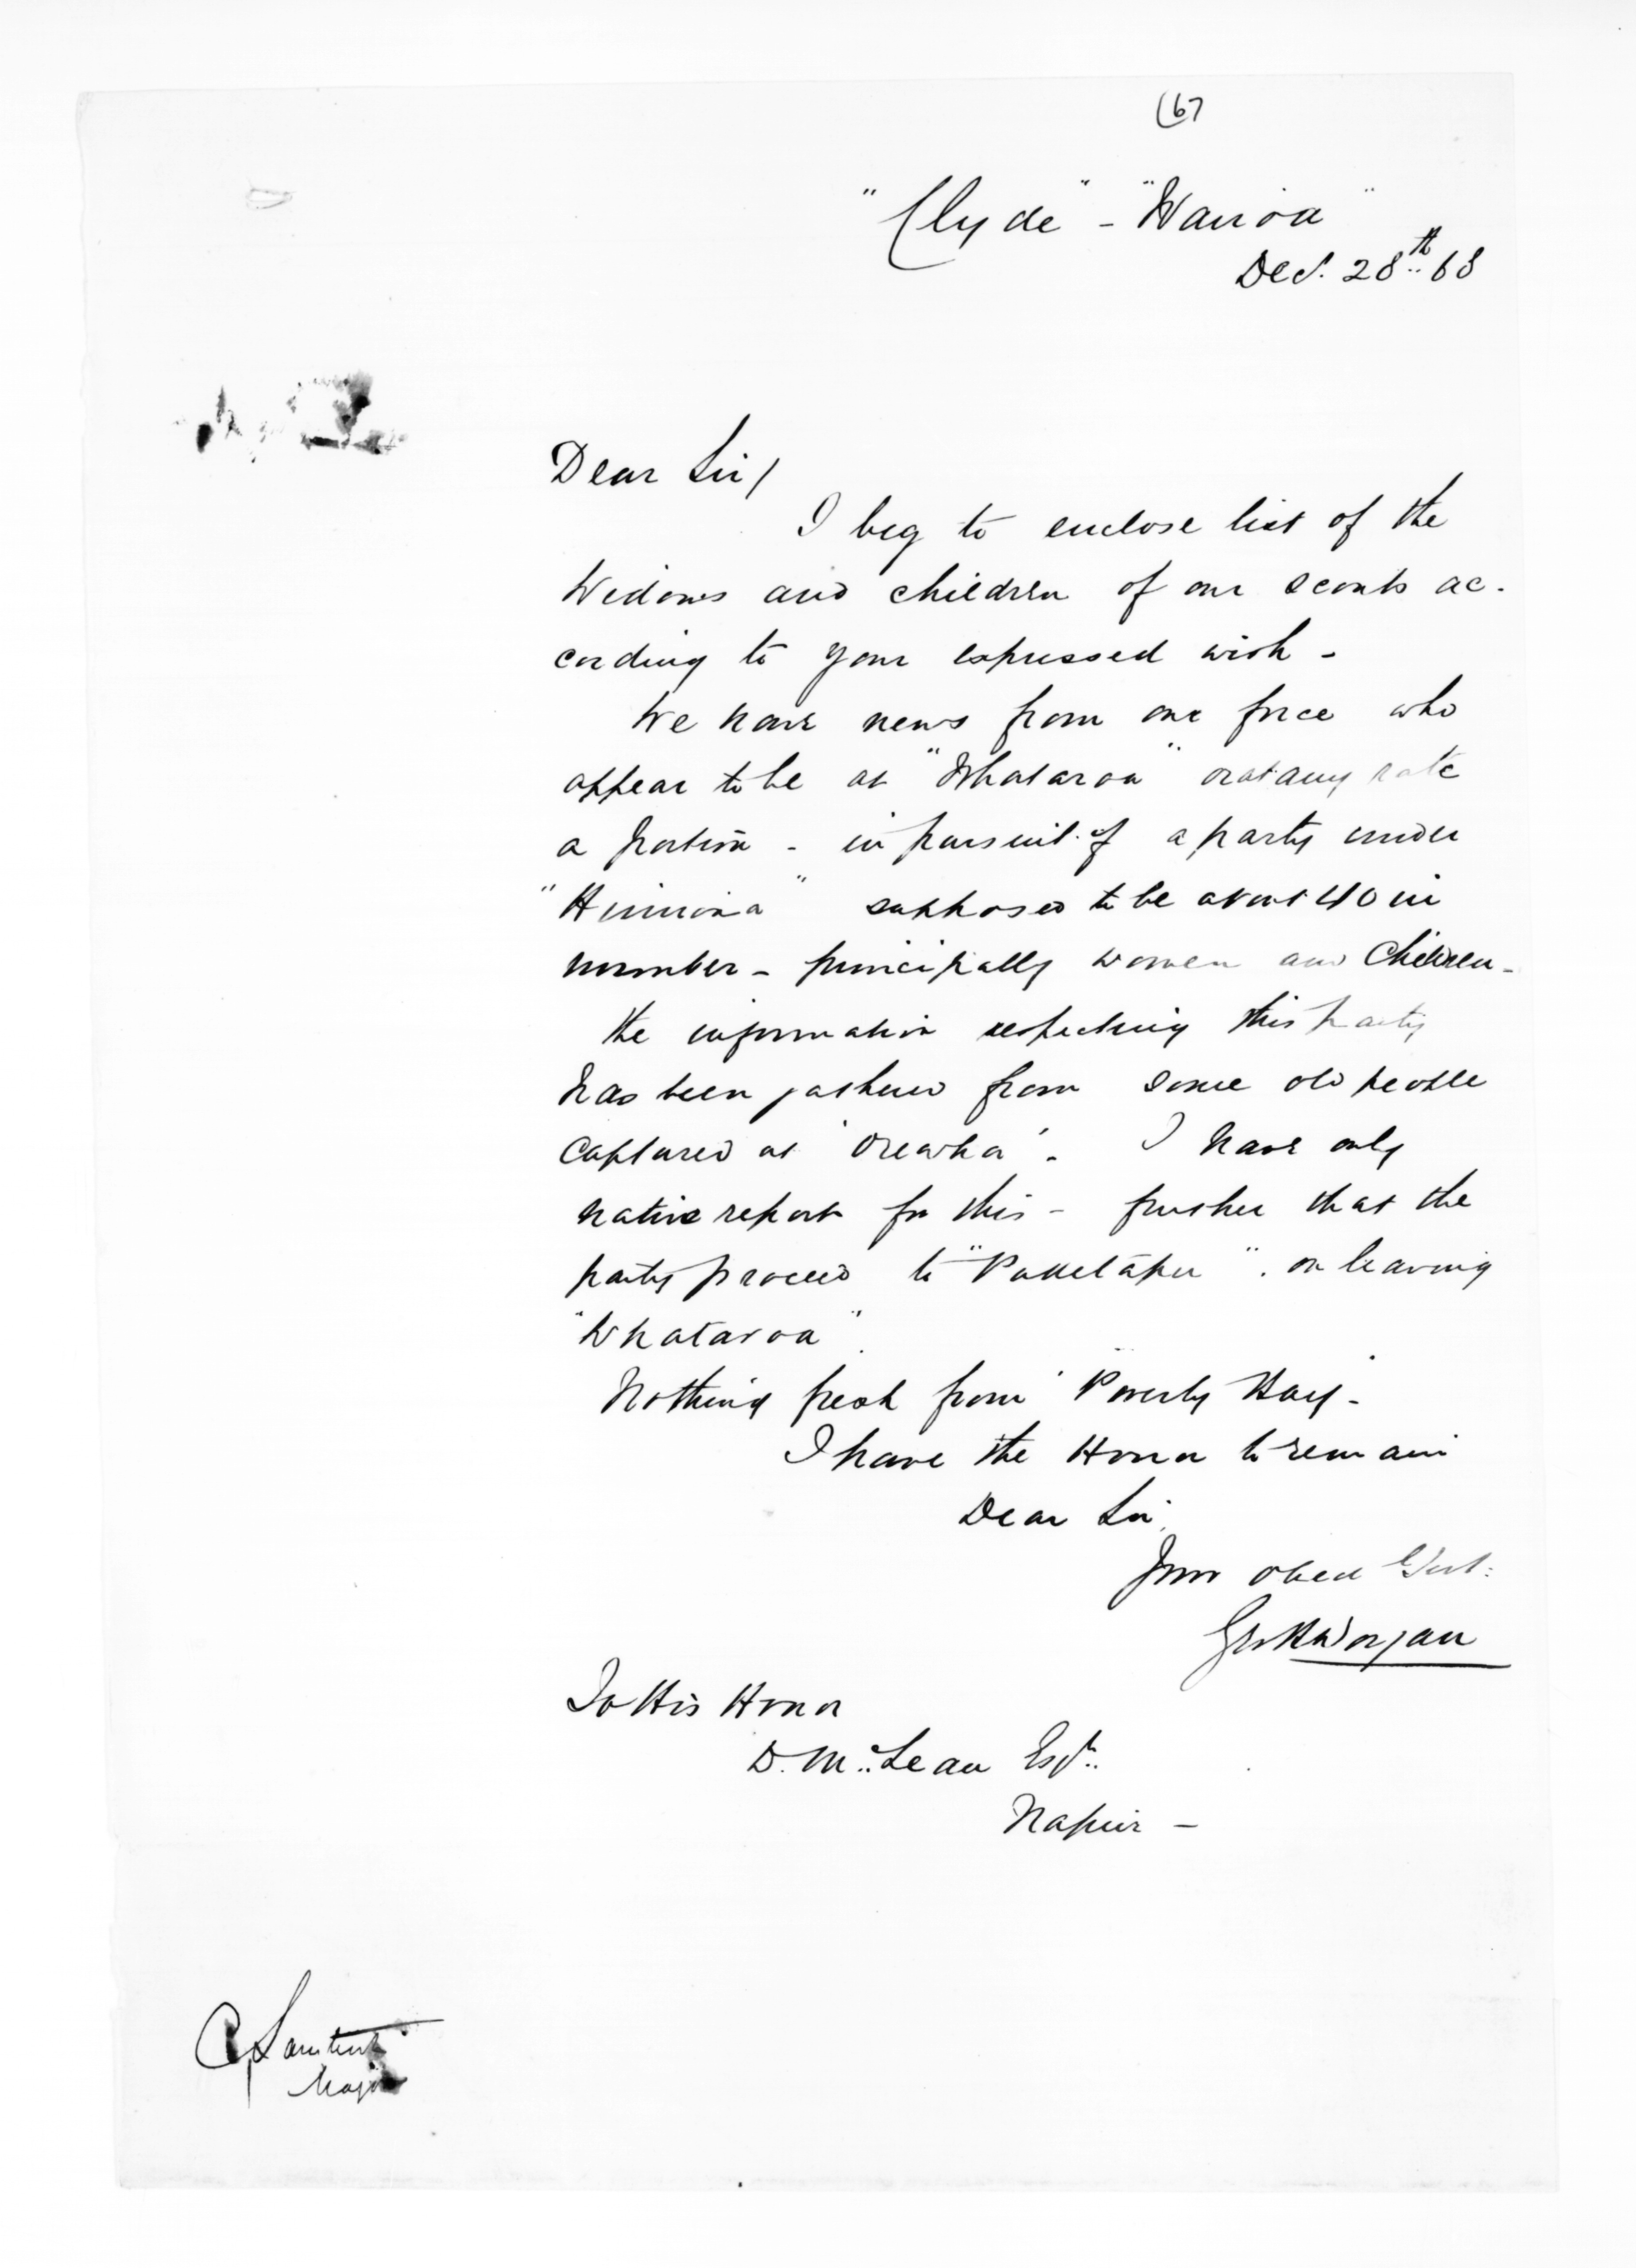 (67
"Clyde" - "Wairoa"
Dec. 28th.. 68
Dear Sir/
I beg to enclose list of the
Widows and children of our scouts ac-
cording to your expressed wish -
We have news from our force who
appear to be at "Whataroa" or at any rate
a portion - in pursuit of a party under
supposed to be about 40 in
number - principally women and Children -
the information respecting this party
has been gathered from some old people
captured at 'Orewha'. I have only
native report for this - further that the
party proceed to " " on leaving
"Whataroa".
Nothing fresh from 'Poverty Bay' -
I have the Honor to remain
Dear Sir,
Your obed Servt:
Geo H Worgan
To His Honor
D. McLean Esqr.
Napier -
Major